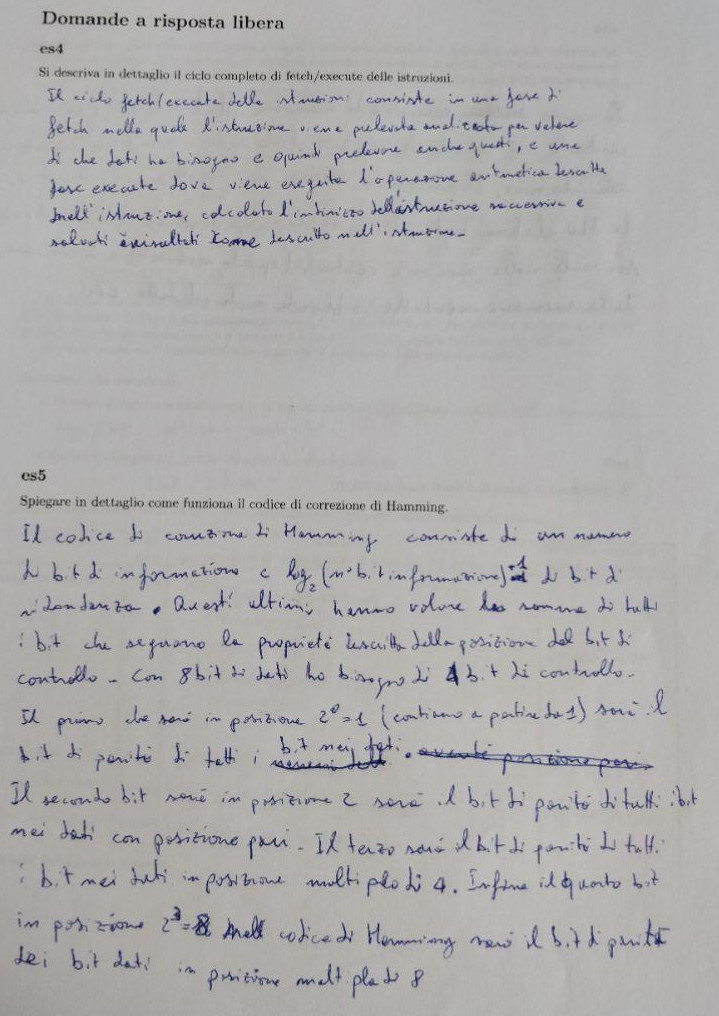 Domande a risposta libera
es4
Si descriva in dettaglio il ciclo completo di fetch/execute delle istruzioni.
Il ciclo fetch/execute delle istruzioni consiste in una fase di
fetch nella quale l'istruzione viene prelevata analizzata per vedere
di che dati ha bisogno e quindi prelevare anche questi, e una
fase execute dove viene eseguita l'operazione aritmetica descritta
nell'istruzione, calcolato l'indirizzo dell'istruzione successiva e
salvati i risultati come descritto nell'istruzione.
es5
Spiegare in dettaglio come funziona il codice di correzione di Hamming.
Il codice di correzione di Hamming consiste di un numero
di bit di informazione e log2(n° bit informazione)+1 di bit di
ridondanza. Questi ultimi hanno valore la somma di tutti
i bit che seguono la proprietà descritta dalla posizione del bit di
controllo. Con 8 bit di dati ho bisogno di 4 bit di controllo.
Il primo che sarà in posizione 2^0=1 (contiamo a partire da 1) sarà il
bit di parità di tutti i bit nei dati.
Il secondo bit sarà in posizione 2 sarà il bit di parità di tutti i bit
nei dati con posizione pari. Il terzo sarà il bit di parità di tutti
i bit nei dati in posizione multiplo di 4. Infine il quarto bit
in posizione 2^3=8 codice di Hamming sarà il bit di parità
dei bit dati in posizione multipla di 8